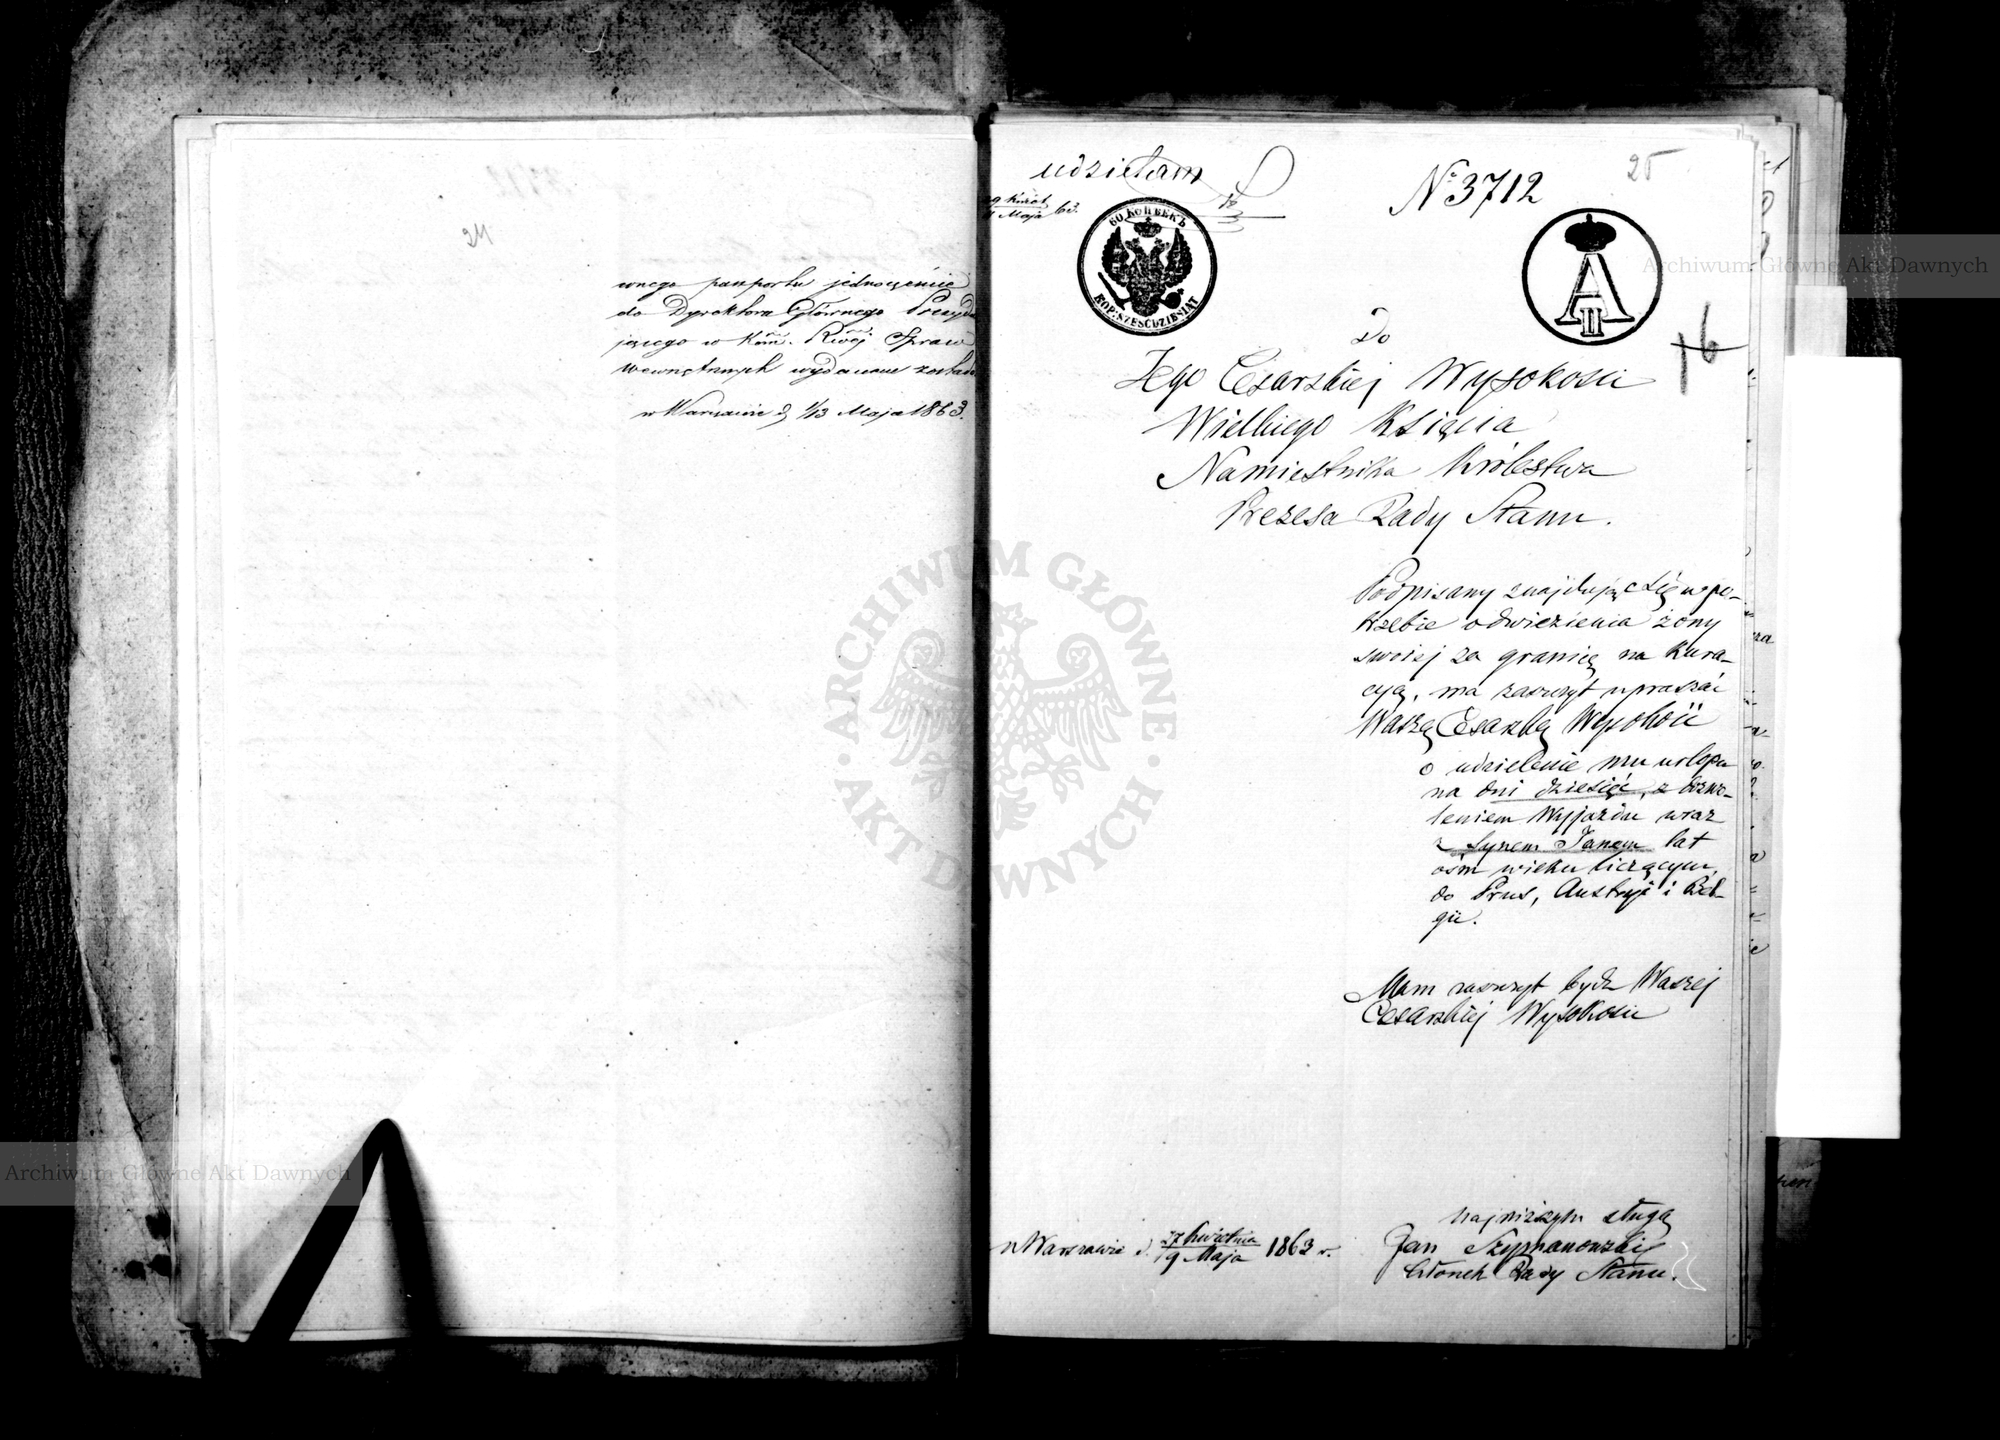 24
wnego paszportu jednocześnie
do Dyrektora Głównego Prezydu
jącego w Kom. Rząd. Spraw
Wewnętrznych wydanem zostało
w Warszawie d. 1/13 Maja 1863.
udzielam
29 Kwiet.
11 Maja 63.
No 3712
25
60 КОПѢЕКЪ
KOP: SZEŚĆDZIESIĄT
A II
16
Do
Jego Cesarskiej Wysokości
Wielkiego Księcia
Namiestnika Królestwa
Prezesa Rady Stanu.
Podpisany znajdując się w po-
trzebie odwiezienia żony
swoiej za granicę na kura-
cyą, ma zaszczyt upraszać
Waszą Cesarską Wysokość
o udzielenie mu urlopu
na dni dziesięć, z dozwo-
leniem wyjazdu wraz
z synem Janem lat
ośm wieku liczącym,
do Prus, Austryi i Bel-
gii.
Mam zaszczyt bydź Waszej
Cesarskiej Wysokości
najniższym sługą
Jan Szymanowski
Członek Rady Stanu.
w Warszawie d. 27 Kwietnia
9 Maja 1863 r.
ARCHIWUM GŁÓWNE AKT DAWNYCH
Archiwum Główne Akt Dawnych
Archiwum Główne Akt Dawnych